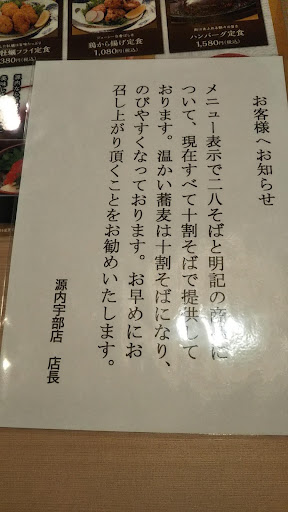 牡蠣フライ定食
380円(税込)
鶏から揚げ定食
1,080円(税込)
ハンバーグ定食
1,580円(税込)
お客様へお知らせ
メニュー表示で二八そばと明記の商品に
ついて、現在すべて十割そばで提供して
おります。温かい蕎麦は十割そばになり、
のびやすくなっております。お早めにお
召し上がり頂くことをお勧めいたします。
源内宇部店 店長